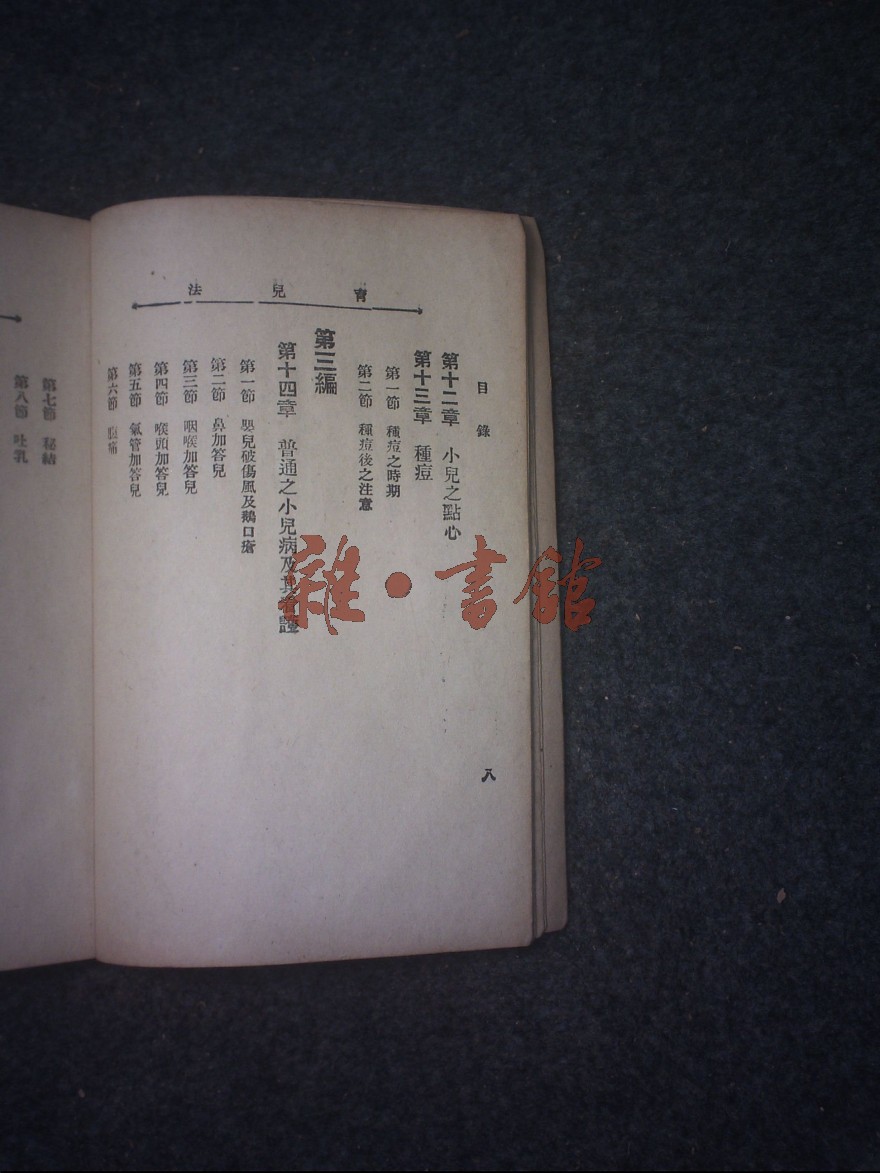 育兒法
目錄
八
第十二章 小兒之點心
第十三章 種痘
第一節 種痘之時期
第二節 種痘後之注意
第三編
第十四章 普通之小兒病及其看護
第一節 嬰兒破傷風及鵝口瘡
第二節 鼻加答兒
第三節 咽喉加答兒
第四節 喉頭加答兒
第五節 氣管加答兒
第六節 腹痛
第七節 秘結
第八節 吐乳
雜·書館